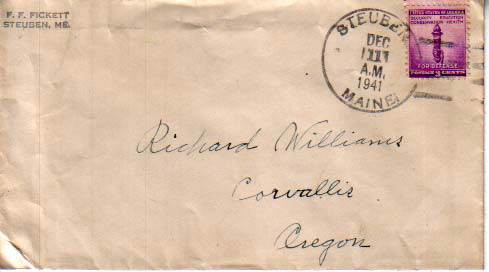 F. F. FICKETT
STEUBEN, ME.
STEUBEN
DEC
11
A.M.
1941
MAINE
UNITED STATES OF AMERICA
SECURITY EDUCATION
CONSERVATION HEALTH
FOR DEFENSE
POSTAGE 3 CENTS
Richard Williams
Corvallis
Oregon